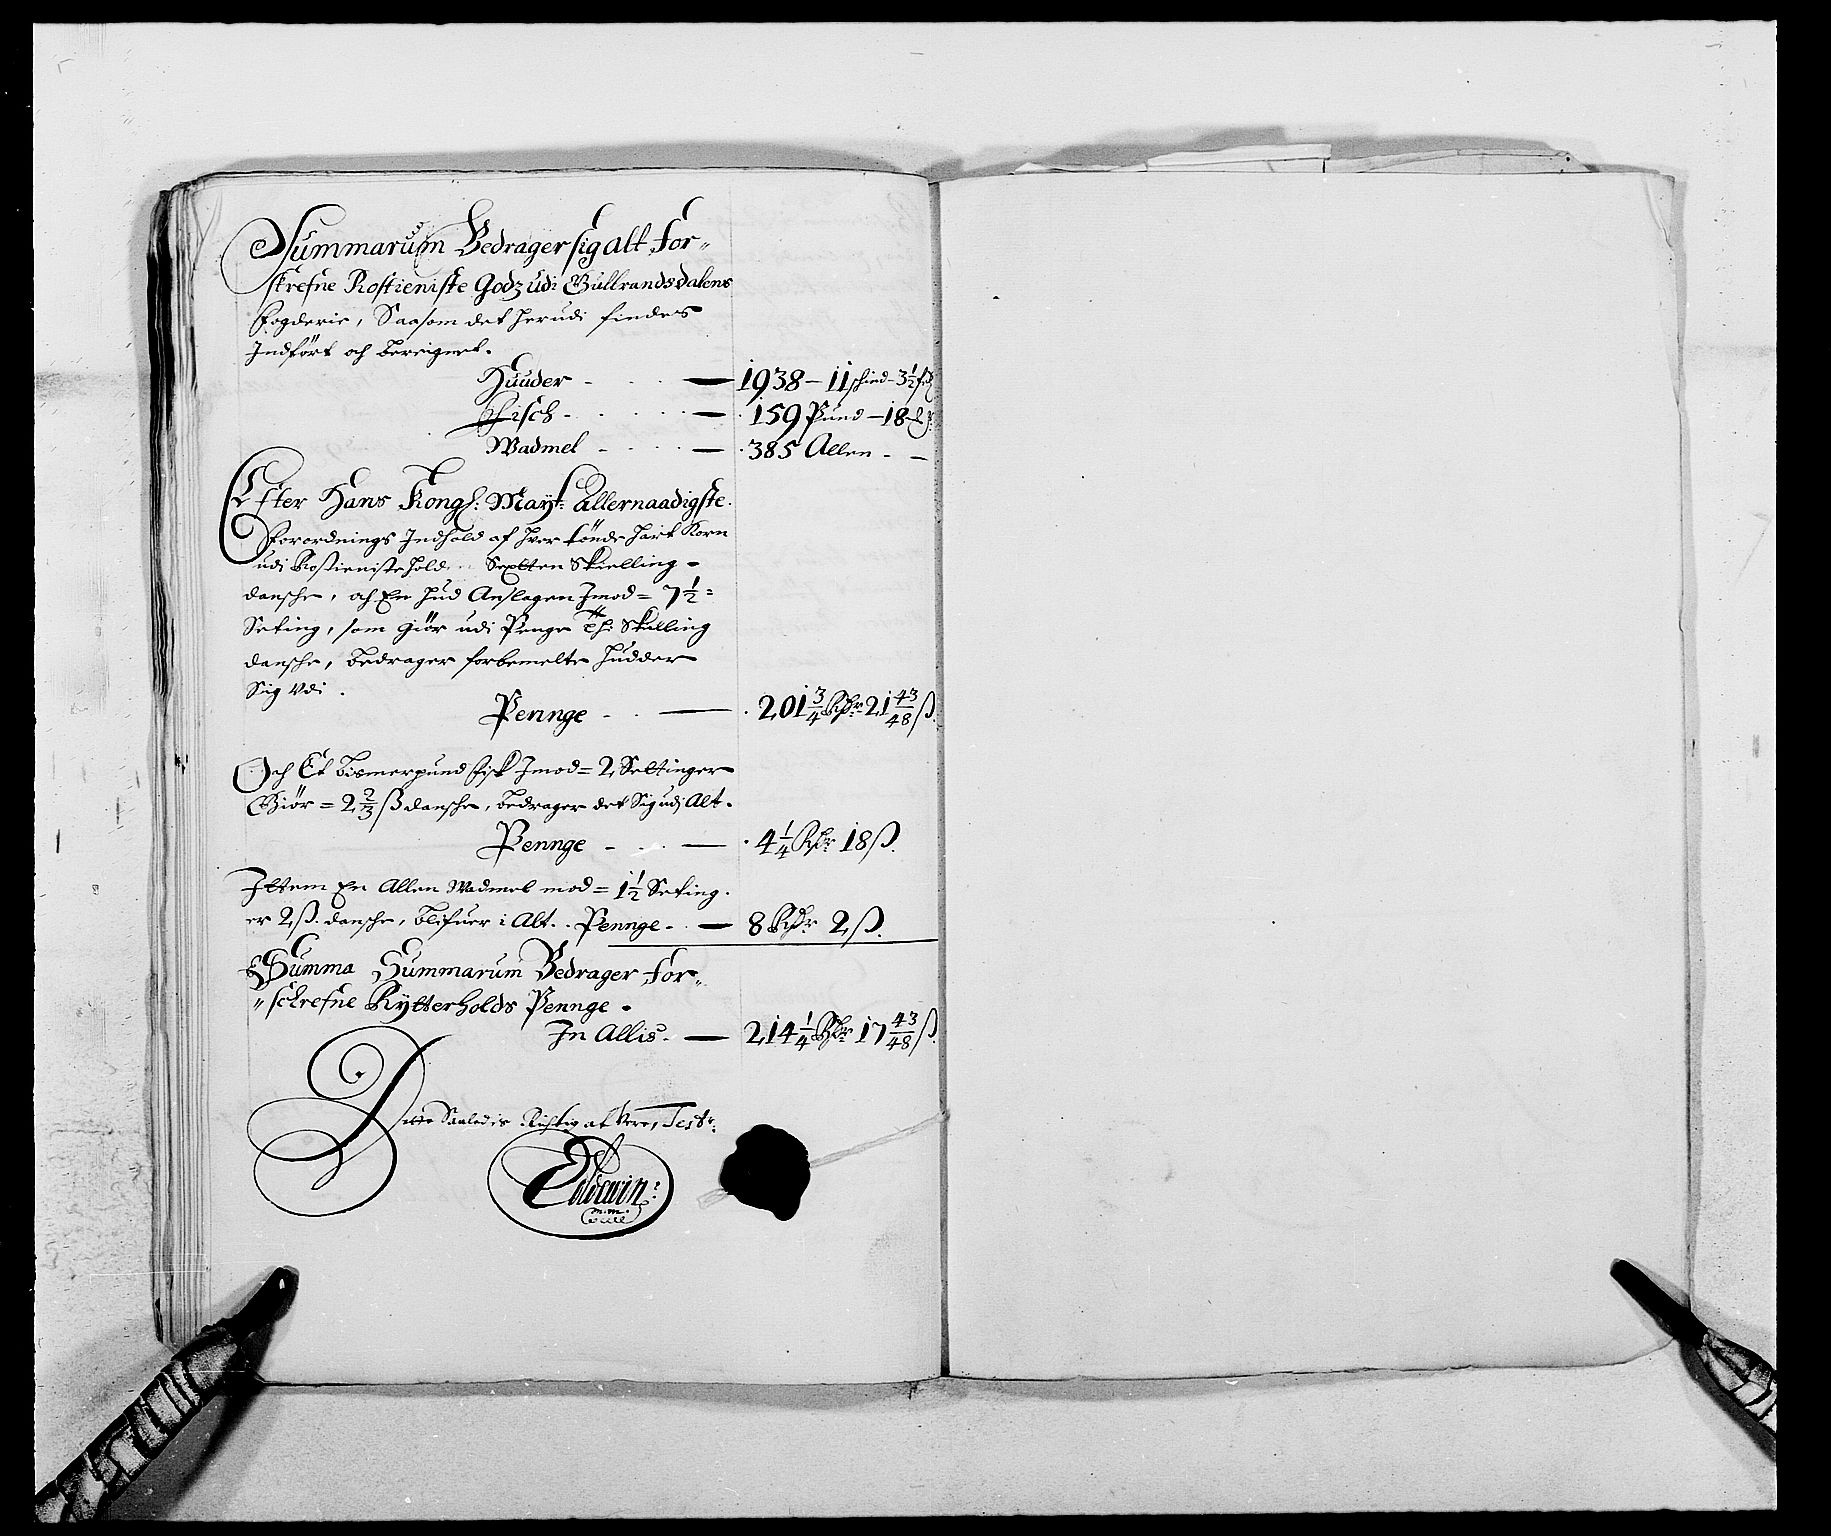 Summarum Bedrager sig alt for„
skrefne Rostieniste Godz udi Gulbrandsdalens
fogderie, Saasom det herudi findes
Indført och bereignet.
Huuder - - - — 1938 – 11 schind – 3½
Fisch - - - — 159 Pund – 18
Wadmel - - - — 385 Allen - –
Efter Hans Kongl: Mayt: Allernaadigste
forordnings Indhold af hver tønde hart Korn
udi Rostieniste hold Sexten Skielling
dansche, och En hud Anslagen Imod = 7½ =
Seting, som giør udi Penge Skilling
dansche, bedrager forbemelte hudder
Sig Udi.
Pennge - - — 201¾ Rdr 21 43/48 ß.
Och Et bismerpund fisk Imod = 2 Settinger
Giør = 2⅔ ß dansche, bedrager det Sig udj Alt.
Pennge - - — 4¼ Rdr 18 ß.
Ittem En Allen Wadmel mod = 1½ Seting.
er 2 ß. dansche, blifuer i Alt. Pennge - — 8 Rdr 2 ß.
Summa Summarum Bedrager for„
„schrefne Rytterholds Pennge.
In Allis. — 214¼ Rdr 17 43/48 ß.
Dette Saaledis Rigtig at Vere, Test: